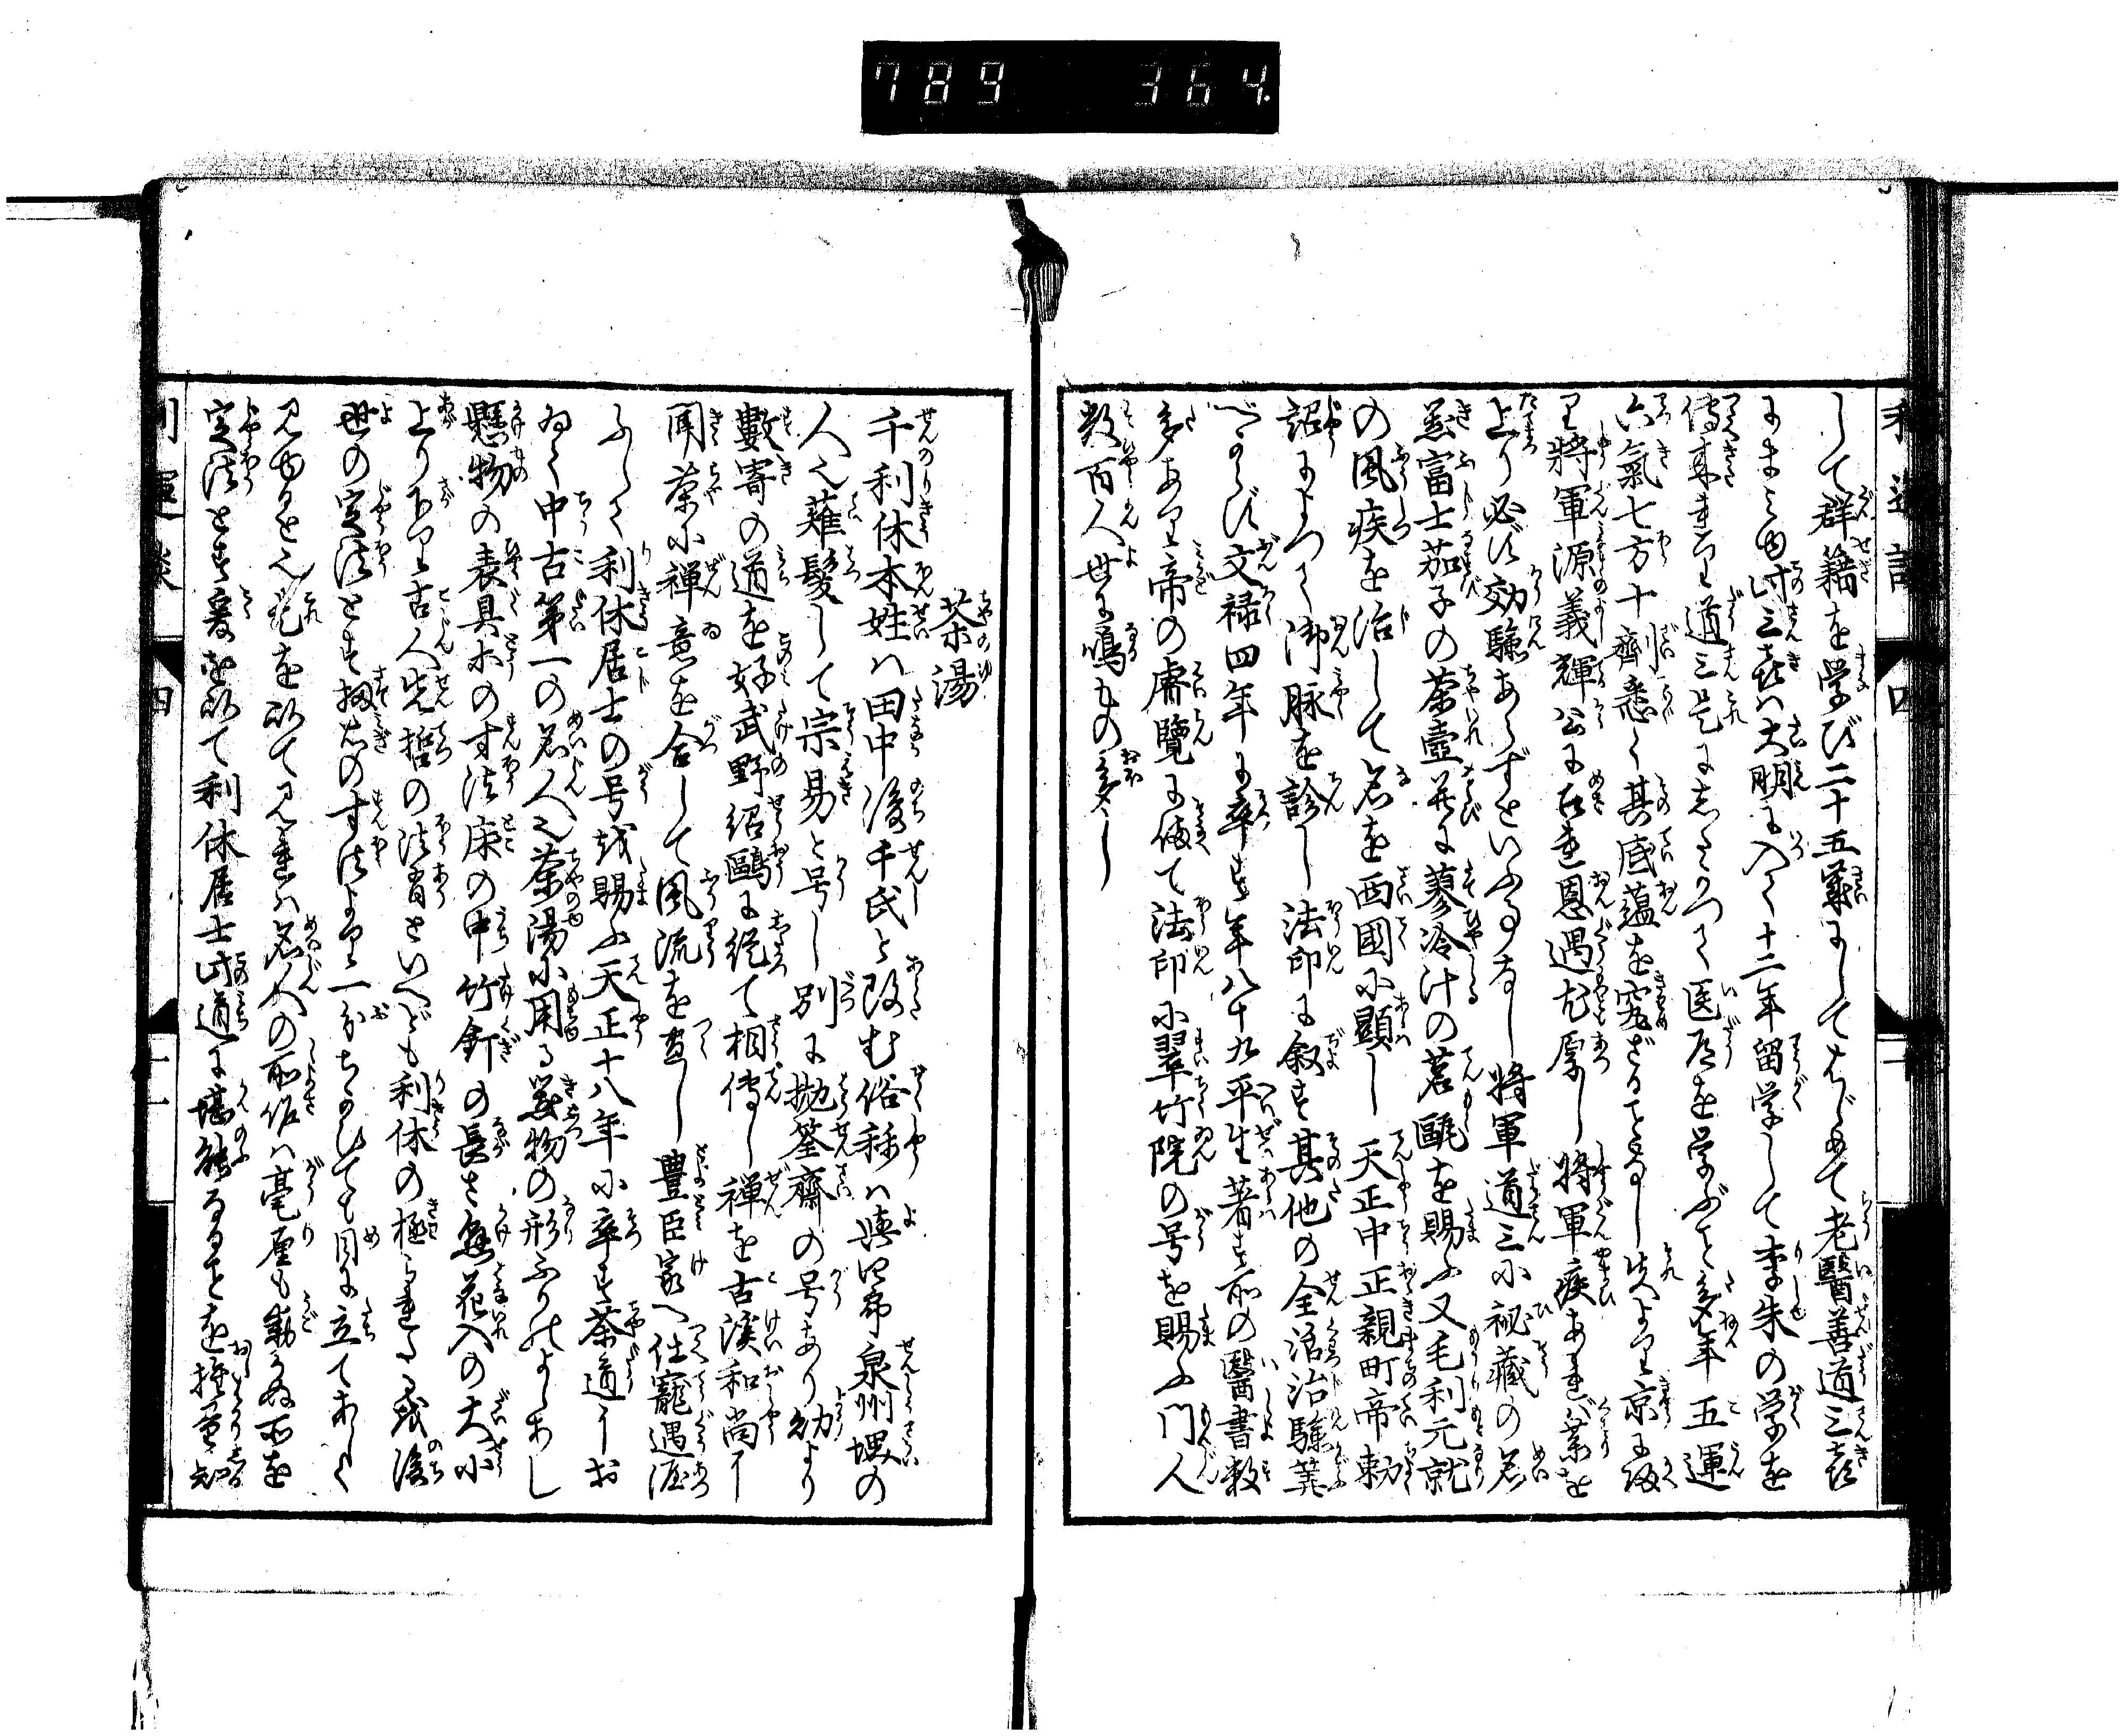 789 364
して群籍を学び二十五歳にしてはじめて老醫善道三喜
にまみゆ此時三喜ハ大明に入て十二年留学して李朱の学を
傳来せり道三是にしたがつて医道を学ぶこと多年五運
六氣七方十劑悉く其底蘊を究ざることなし夫より京に皈
り將軍源義輝公に召れ恩遇尤厚し將軍疾あれバ薬を
上り必ず効驗あらずといふ事なし將軍道三に祕藏の名
器富士茄子の茶壷并に蓼冷汁の茗甌を賜ふ又毛利元就
の風疾を治して名を西國に顯し天正中正親町帝勅
詔によつて御脉を診し法印に叙す其他の全活治驗筭
べからず文禄四年に卒す年八十九平生著す所の醫書数
多あり帝の睿覽に備て法印に翠竹院の号を賜ふ門人
数百人世に鳴もの多し
茶湯
千利休本姓ハ田中後千氏と改む俗称ハ與四郎泉州堺の
人也薙髮して宗易と号し別に抛筌齋の号あり幼より
數寄の道を好武野紹鷗に從て相傳し禅を古溪和尚に
聞茶に禅意を合して風流を盡し豊臣家へ仕寵遇渥
ふして利休居士の号を賜ふ天正十八年に卒す茶道にお
ゐて中古第一の名人也茶湯に用る器物の形ふりのよしあし
懸物の表具等の寸法床の中竹釘の長さ懸花入の大小
上り下り古人先哲の法有といへども利休の極られしを後
世の定法とす扨右の寸法より一分ちがひても目に立てあしく
見ゆると也是を以て見れハ名人の所作ハ毫厘も動かぬ所を
定法とす爰を以て利休居士此道に堪能なることを推量知